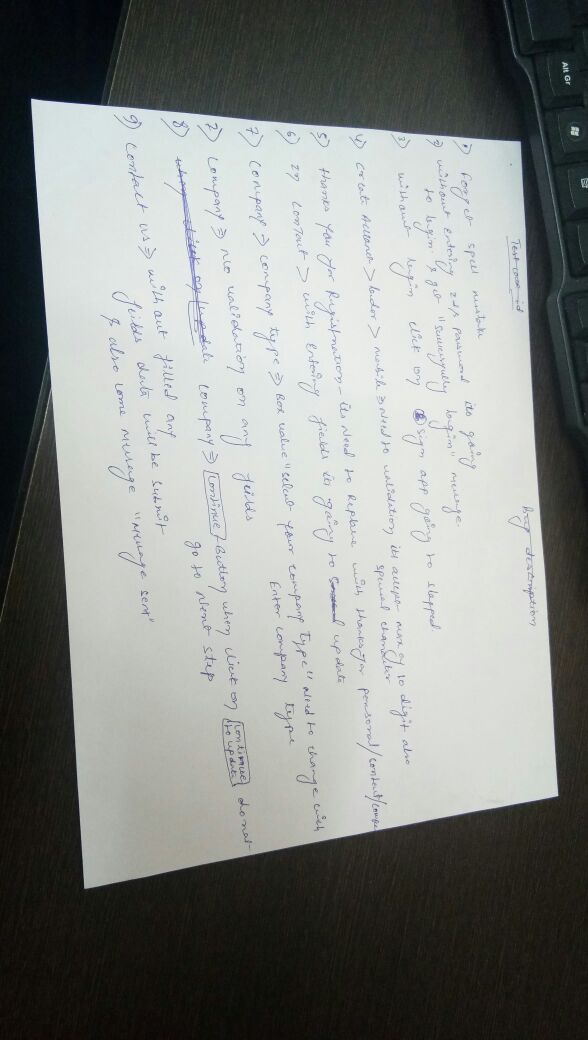 Test case id
Bug description
1) Forget spell mistake
2) without entering password its going
to login & get "successfully login" message.
3) without login click on sign app going to stopped
4) Create Account > > mobile > Need to validation its accept max 10 digit also
special character
5) thanks you for Registration - its need to Replace with thanks for personal/contact/
6) In contact > with entering fields is going to update
7) Company > company type => Box value "select your company type" need to change with
Enter company type
7) Company => no validation on any fields
8) company => Continue Button when click on Continue to update do not
go to next step
9) Contact us => without filled any
fields data will be submit
& also come message "message sent"
Alt Gr